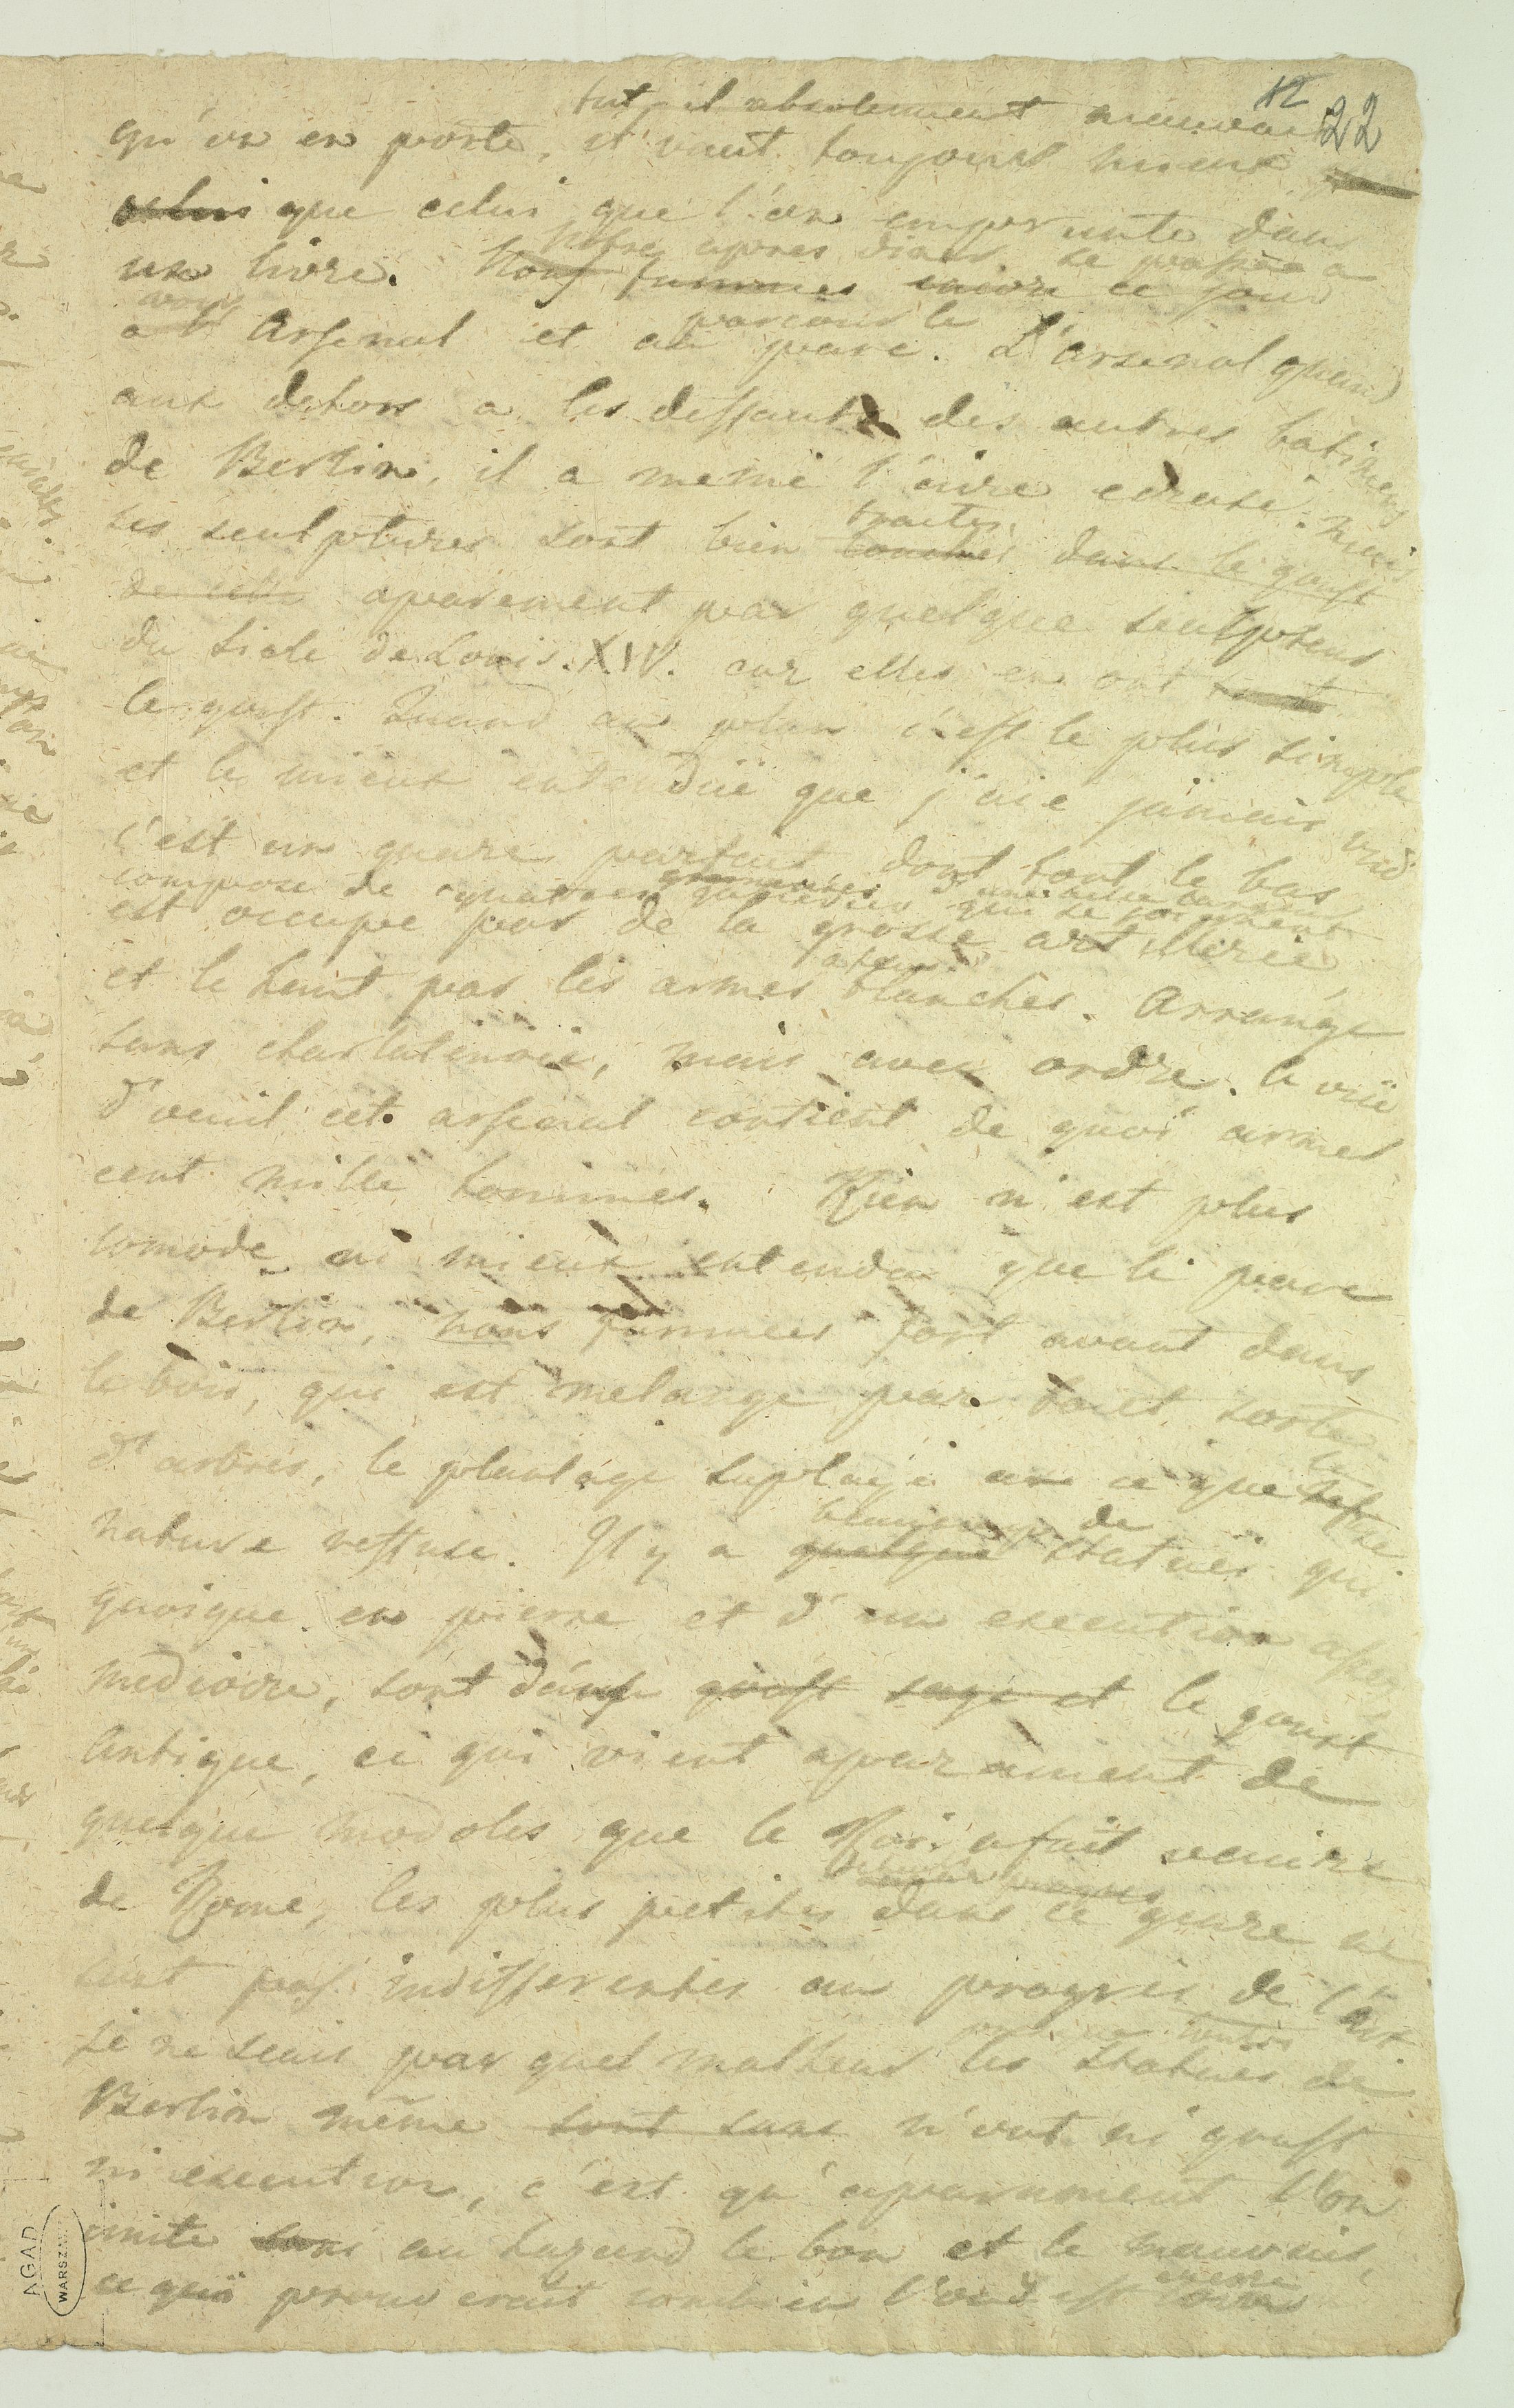 12
22
fut il absolument mauvais
qu'on en porte, il vaut toujours mieux
celui que celui que l'on emprunte dans
Notre apres diner se passa a
un livre. Nous fummes ce jour
voir
a l'Arsenal et au parc. L'arsenal quand
parcourir le
aux dehors a les deffauts des autres batimens
de Berlin, il a meme l'aire ecrasé. mais
traites
ses sculptures sont bien touches dans le goust
de cette aparement par quelque sculpteur
du siecle de Louis. XIV. car elles en ont tout
le goust. Quand au plan c'est le plus simple
et le mieux entendüe que j'aie jamais vud
c'est un quare parfait dont tout le bas
compose de quatres galeries qui se joignent
est occupe par de la grosse artillerie
et le haut par les armes blanches. Arrangé
sans charlatenerie, mais avec ordre. a vüe
d'oeuil cet arsenal contient de quoi armer
cent mille hommes. Rien n'est plus
comode ni mieux entendu que le parc
de Berlin, nous fummes fort avant dans
le bois, qui est melangé par tout sorte
d'arbres, le plantage suplayé a ce que la
nature reffuse. Il y a quelque statues qui
beaucoup de
quoique en pierre et d'une execution assez
mediocre, sont dans goust sage et le goust
Antique, ce qui vient aparament de
quelque modeles que le Roi a fait venire
de Rome, les plus petites dans ce genre ne
sont pas indifferentes au progrès de l'art
je ne scais par quel malheur les statues de
Berlin même sont sans n'ont ni goust
ni execution, c'est qu'aparamment l'on
imite sans au hazard le bon et le mauvais,
ce qui prouverait combien l'on est
AGAD
WARSZAWA